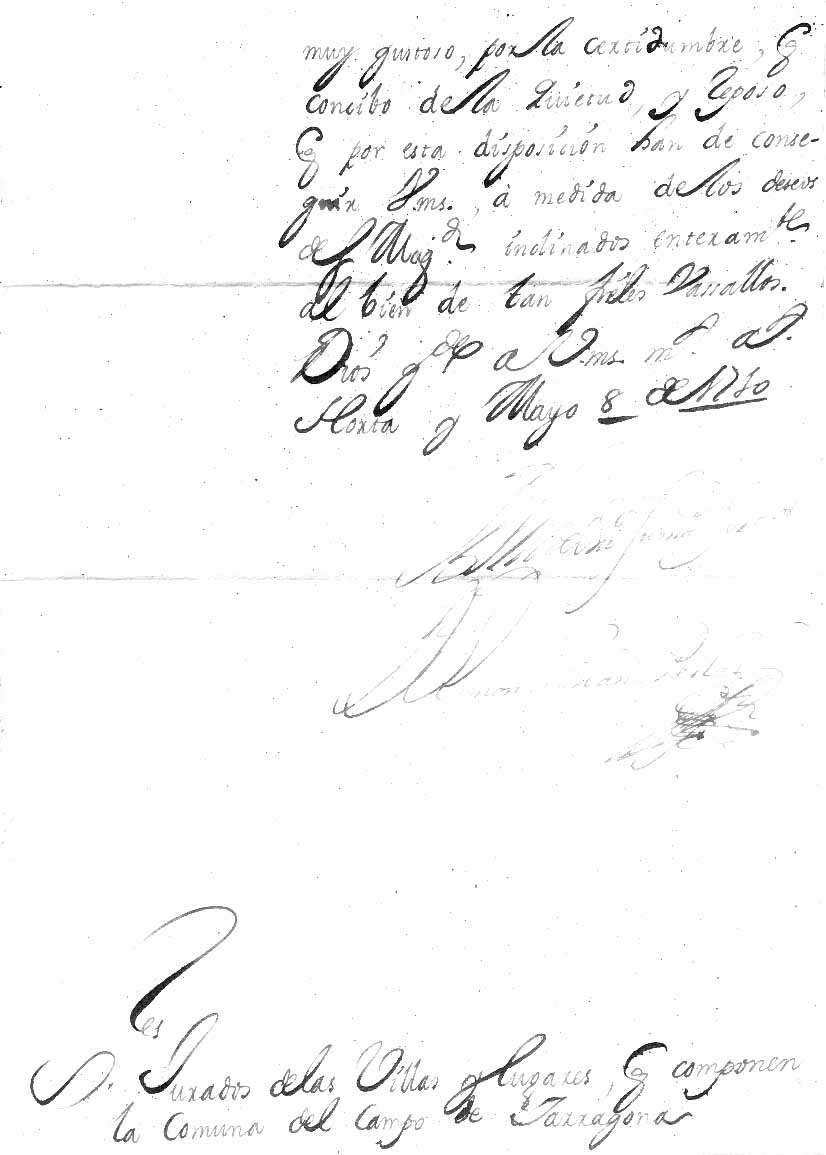 muy gustoso, por la certidumbre, q̃
concibo de la Quietud, y Reposo,
q̃ por esta disposición han de conse-
guir V.ms., à medida de los deseos
de S. Mag.d inclinados enteram.te
al bien de tan fieles Vassallos.
Dios g.de a V.ms. m.s a.s
Horta y Mayo 8 de 1710
S.res Jurados de las Villas y lugares, q̃ componen
la Comuna del Campo de Tarragona